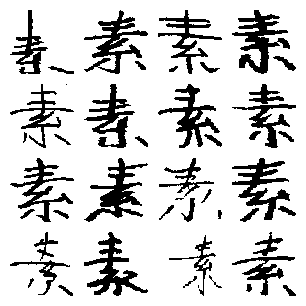 素素素素
素素素素
素素素素
素素素素